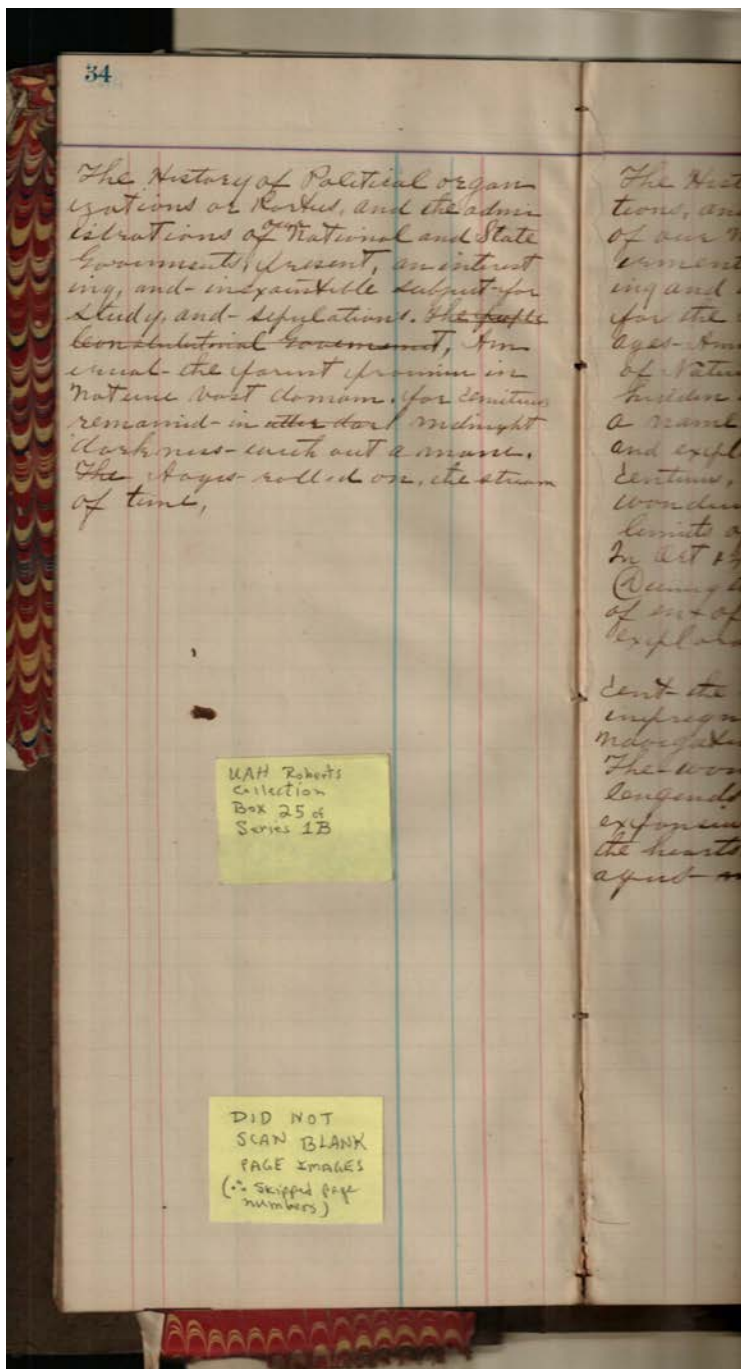 34
The History of Political organ
izations or Parties, and the admi
istrations of our National and State
Goverments, present, an interest
ing, and inexaintible subject for
study, and sepulations. The people
Constitutional Goverment, Am
erica the
Nature vast domain. for centurus
remained in utter dark midnight
darkness without a name.
The Ages rolled on, the stream
of time,
UAH Roberts
Collection
Box 25 of
Series 1B
DID NOT
SCAN BLANK
PAGE IMAGES
(∴ Skipped page
numbers)
The Hist
tions, an
of our N
erment
ing and
for the
ages
of Natu
hidden
a name
and expl
Centurus,
wonder
limits o
In art &
During
of
explora
Cent the
impregn
navigati
The won
lengends
expansi
the hearts